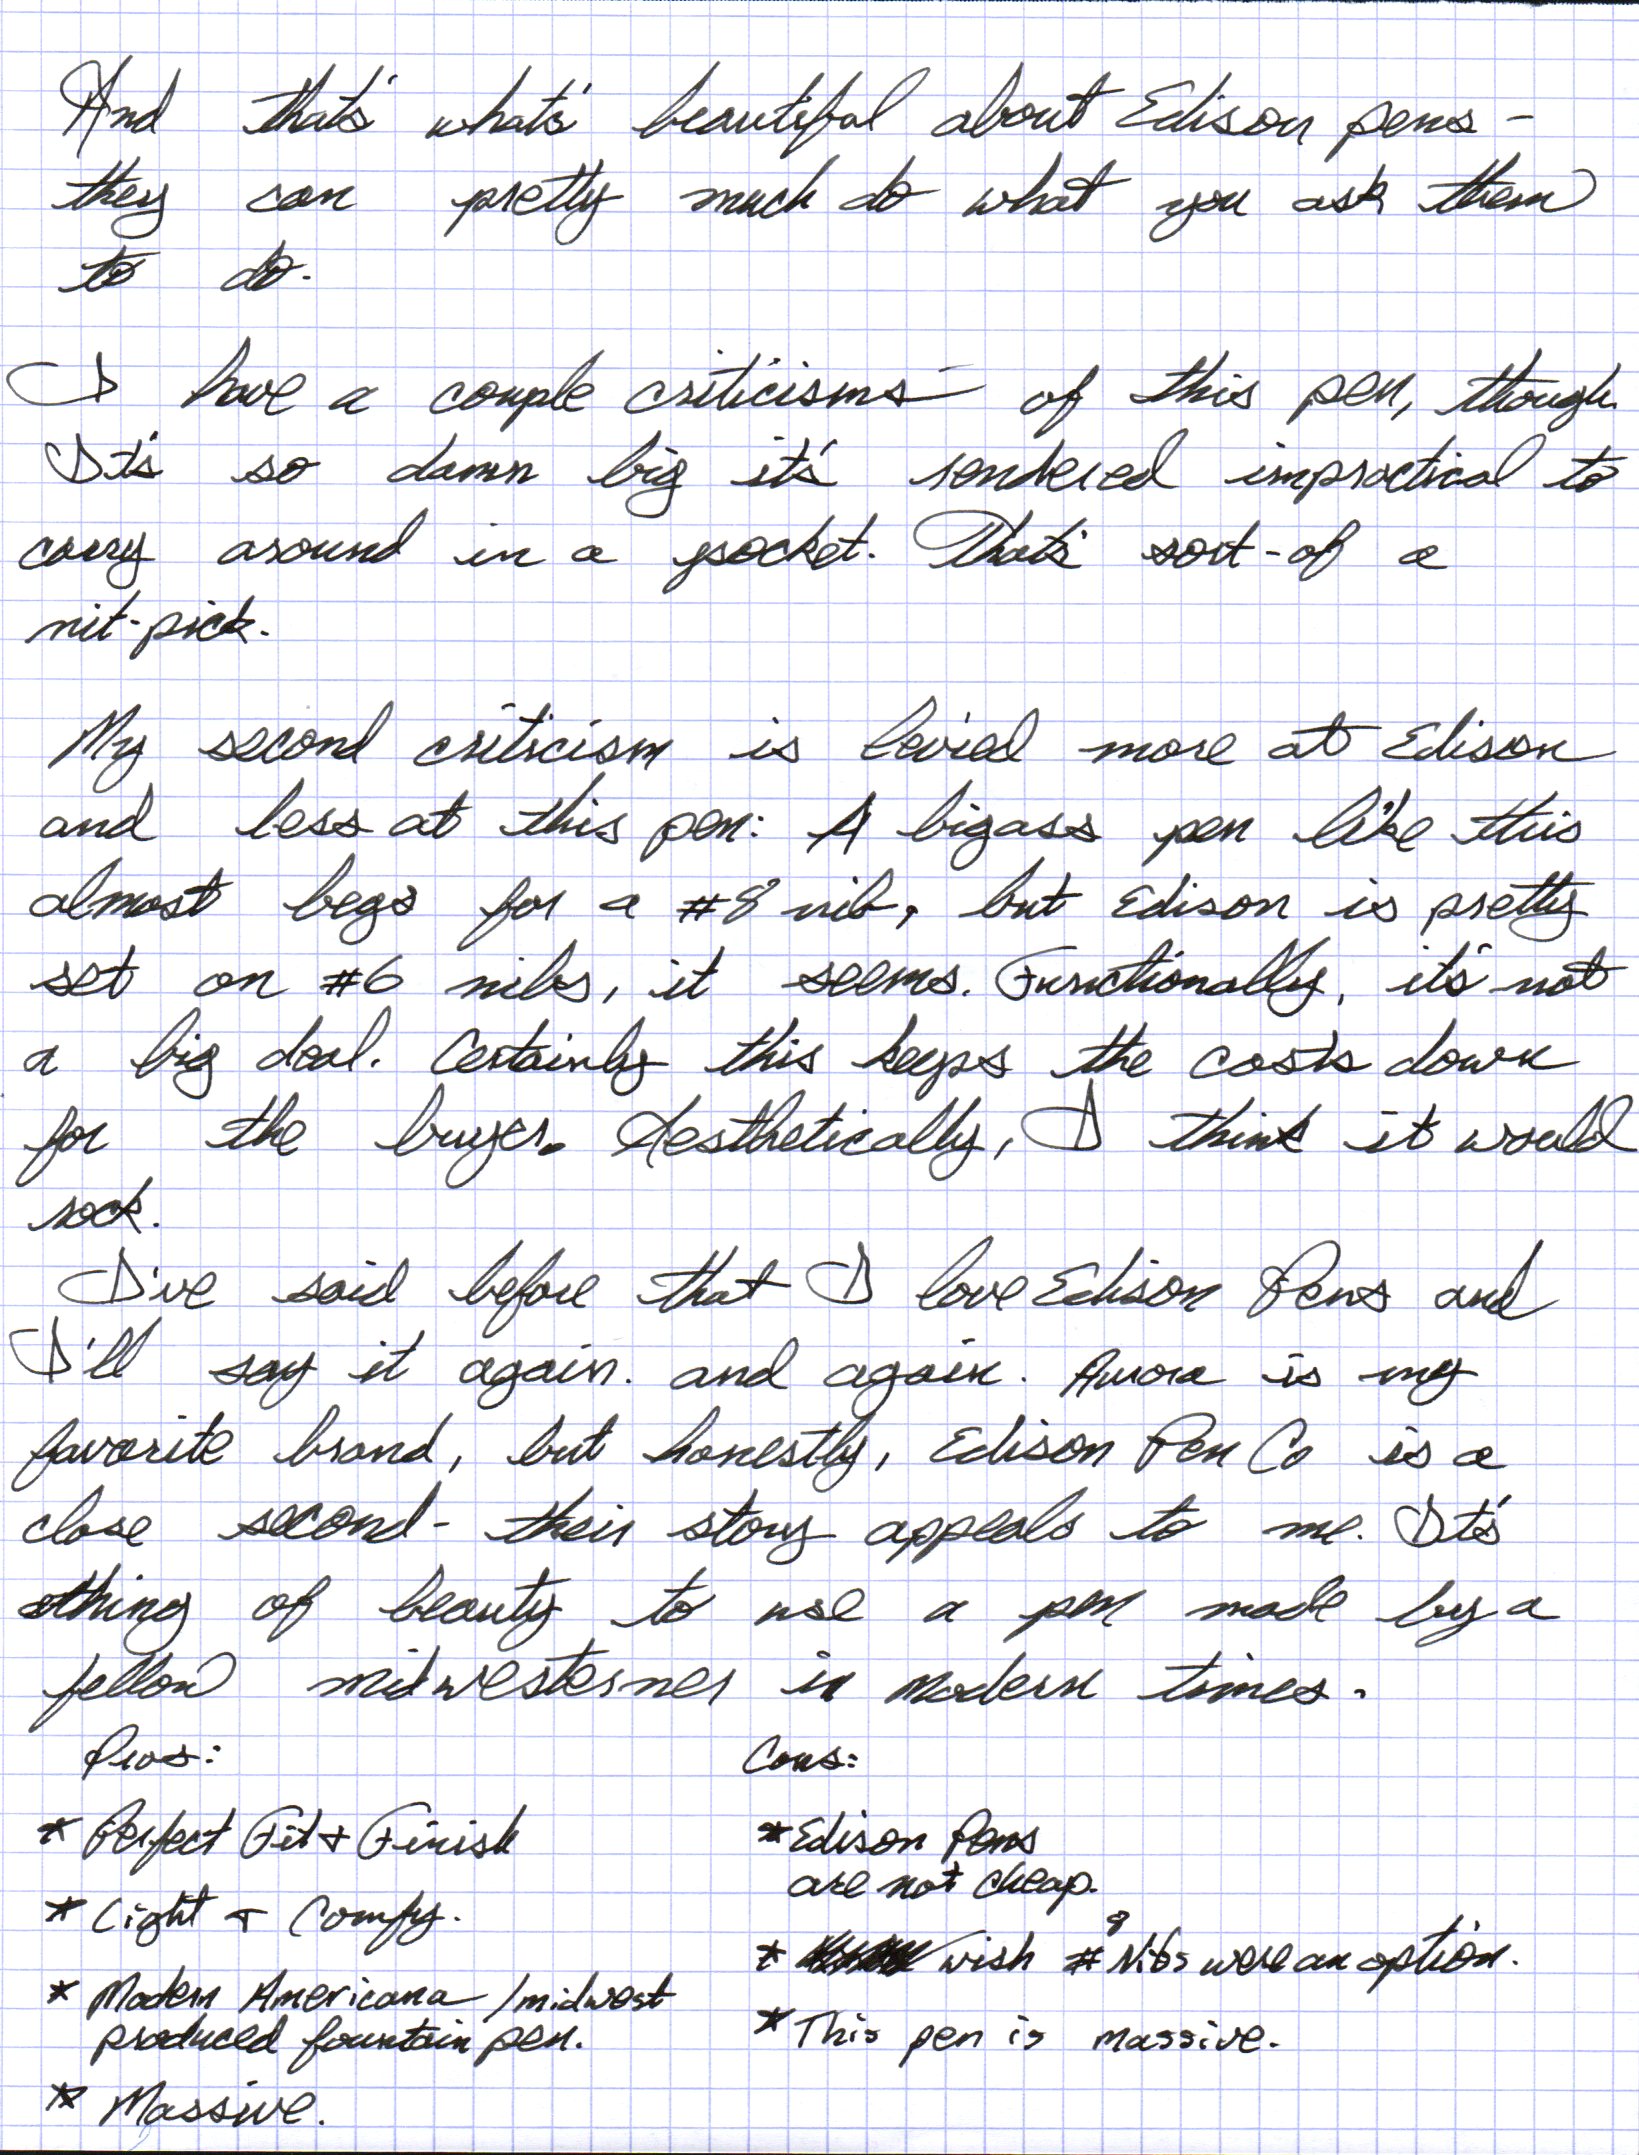 And that's what's beautiful about Edison pens -
they can pretty much do what you ask them
to do.
I have a couple criticisms of this pen, though.
It's so damn big it's rendered impractical to
carry around in a pocket. That's sort-of a
nit-pick.
My second criticism is levied more at Edison
and less at this pen: A bigass pen like this
almost begs for a #8 nib, but Edison is pretty
set on #6 nibs, it seems. Functionally, it's not
a big deal. Certainly this keeps the costs down
for the buyer. Aesthetically, I think it would
rock.
I've said before that I love Edison Pens and
I'll say it again. and again. Aurora is my
favorite brand, but honestly, Edison Pen Co is a
close second - their story appeals to me. It's
thing of beauty to use a pen made by a
fellow midwesterner in modern times.
Pros:
* Perfect Fit & Finish
* Light & Comfy.
* Modern Americana / midwest
produced fountain pen.
* Massive.
Cons:
* Edison Pens
are not cheap.
* wish #8 Nibs were an option.
* This pen is massive.